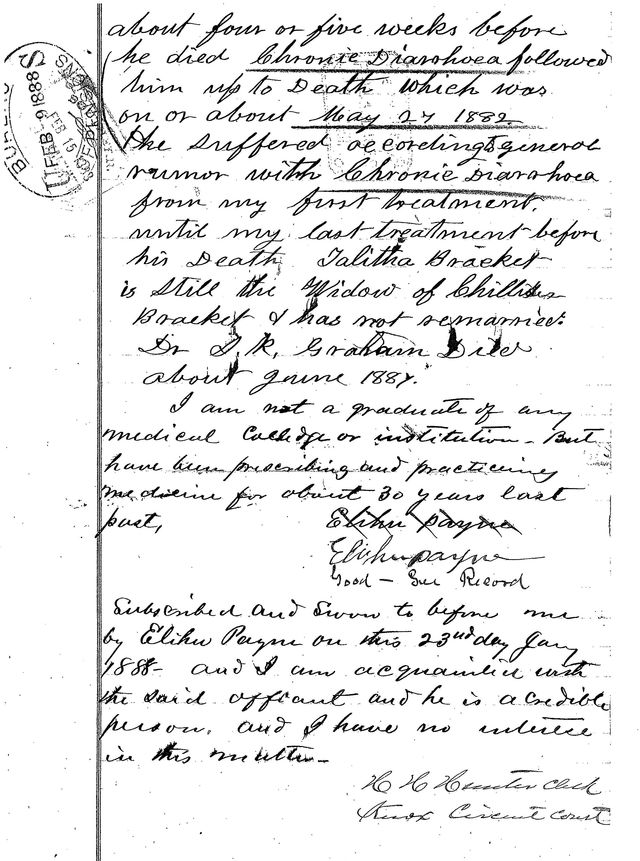 about four or five weeks before
he died Chronic Diarrhoea followed
him up to Death which was
on or about May 27 1882
he suffered according to general
rumor with Chronic Diarrhoea
from my first treatment.
until my last treatment before
his Death Talitha Bracket
is still the Widow of
Bracket & has not remarried.
Dr I. K. Graham Died
about June 1887.
I am not a graduate of any
medical Colledge or institution - But
have been prescribing and practiceing
medicine for about 30 years last
past,
Elihu Payne
Elihu payne
Good - See Record
Subscribed and Sworn to before me
by Elihu Payne on this 23nd day Jany
1888 - and I am acquainted with
the said affiant and he is a credible
person. and I have no interest
in this matter -
H H Hunter Clerk
Knox Circuit Court
FEB 9 1888
FEB 15